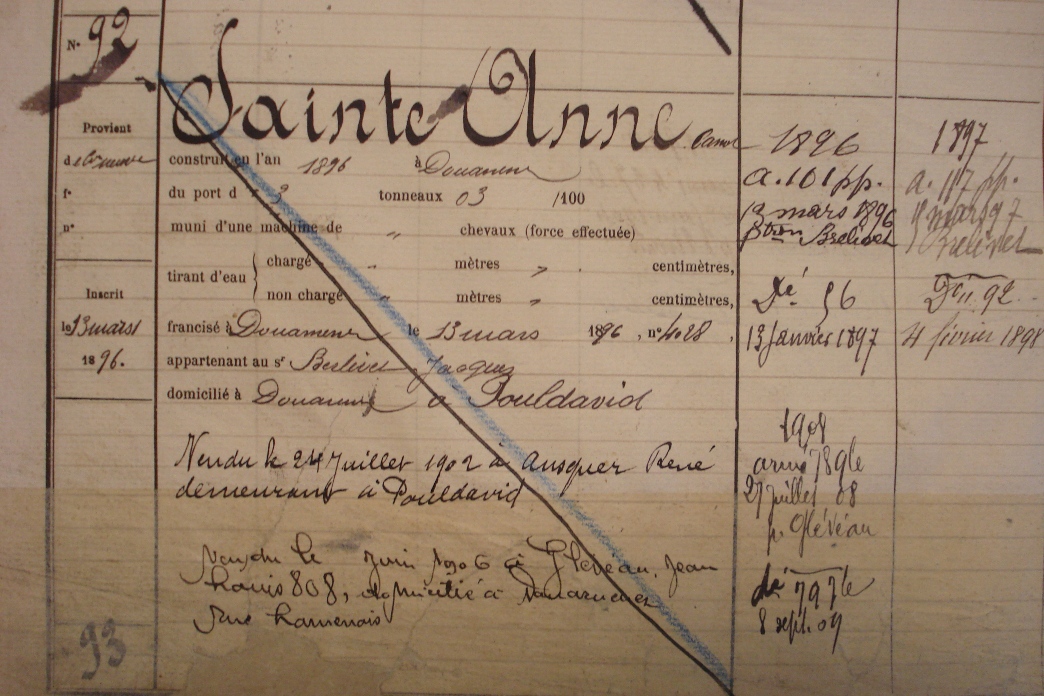 N° 92
Sainte Anne Canot
Provient
construit en l'an 1896 à Douarnenez
du port d 3 tonneaux 03 /100
f°
muni d'une machine de " chevaux (force effectuée)
n°
tirant d'eau
chargé " mètres " centimètres,
non chargé " mètres " centimètres,
Inscrit
le 13 mars
1896.
francisé à Douarnenez le 13 mars 1896, n° 4028,
appartenant au sr Brelivet Jacques
domicilié à Douarnenez à Pouldavid
Vendu le 24 Juillet 1902 à Ausquer René
demeurant à Pouldavid
Vendu le Juin 1906 à Glévéau, Jean
Louis 808, domicilié à Douarnenez
rue
93
1896
a. 101 pp.
12 mars 1896
Brelivet
Dé 56
13 Janvier 1897
190
armé 789
27 juillet 08
p. Glévéau
dé 797
8 sept. 09
1897
a. 117 pp.
mars 97
Brelivet
92
4 février 1898